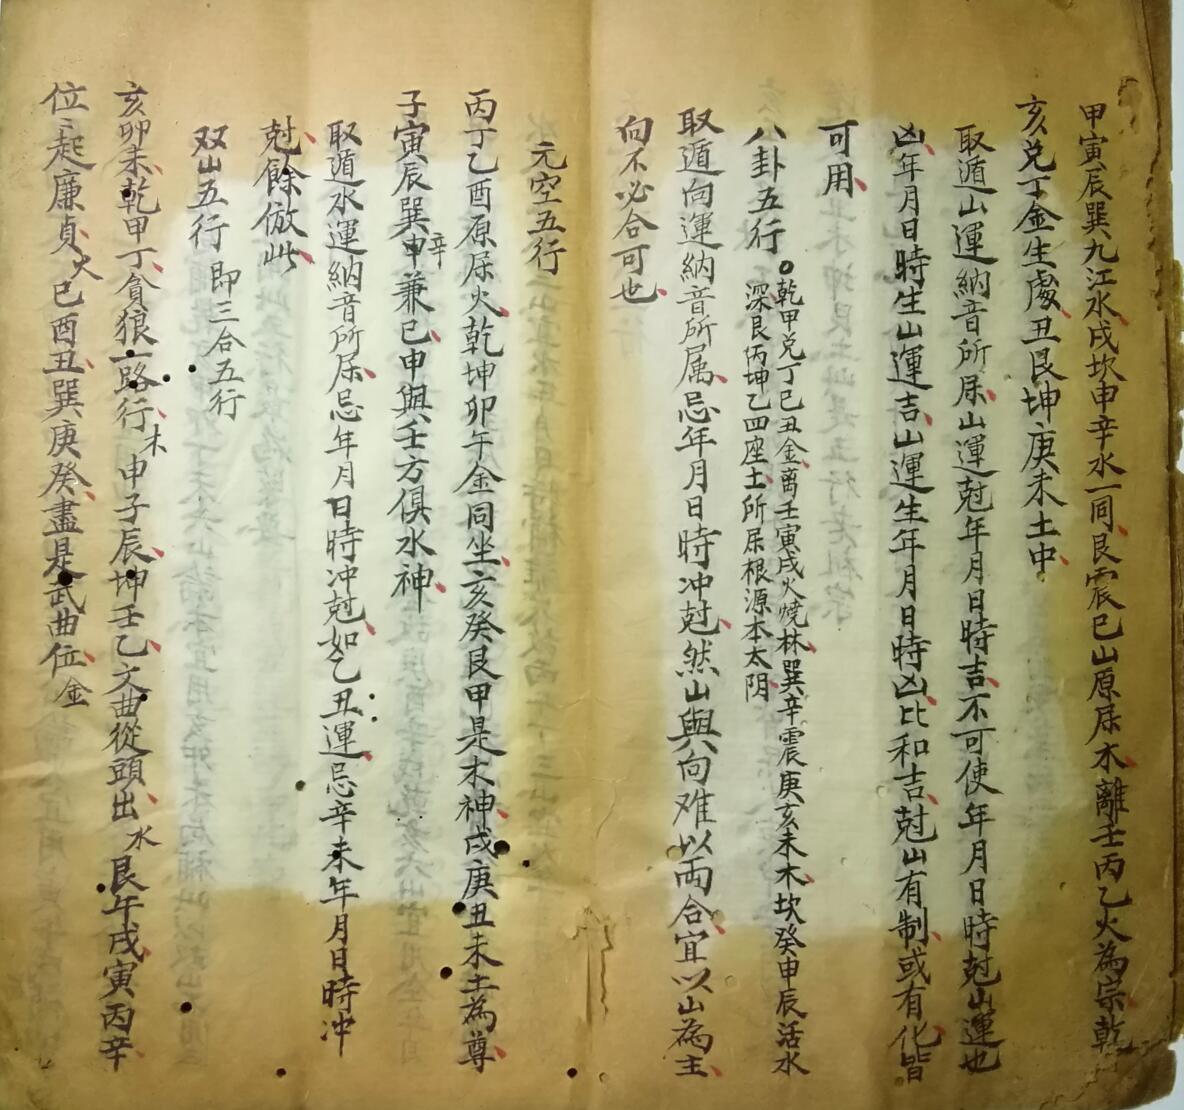 甲寅辰巽九江水戌坎申辛水一同艮震巳山原屬木離壬丙乙火為宗乾
亥兑丁金生處丑艮坤庚未土中
取遁山運納音所屬山運尅年月日時吉不可使年月日時尅山運也
凶年月日時生山運吉山運生年月日時凶比和吉尅山有制或有化皆
可用
八卦五行 乾甲兑丁巳丑金离壬寅戌火燒林巽辛震庚亥未木坎癸申辰活水
深艮丙坤乙四座土所屬根源本太阴
取遁向運納音所属忌年月日時冲尅然山與向难以両合宜以山為主
向不必合可也
元空五行
丙丁乙酉原屬火乾坤卯午金同坐亥癸艮甲是木神戌庚丑未土為尊
子寅辰巽申辛兼巳申與壬方俱水神
取遁水運納音所屬忌年月日時冲尅如乙丑運忌辛未年月日時冲
尅餘倣此
双山五行 即三合五行
亥卯未乾甲丁貪狼一路行木申子辰坤壬乙文曲從頭出水艮午戌寅丙辛
位々起廉貞火巳酉丑巽庚癸盡是武曲位金